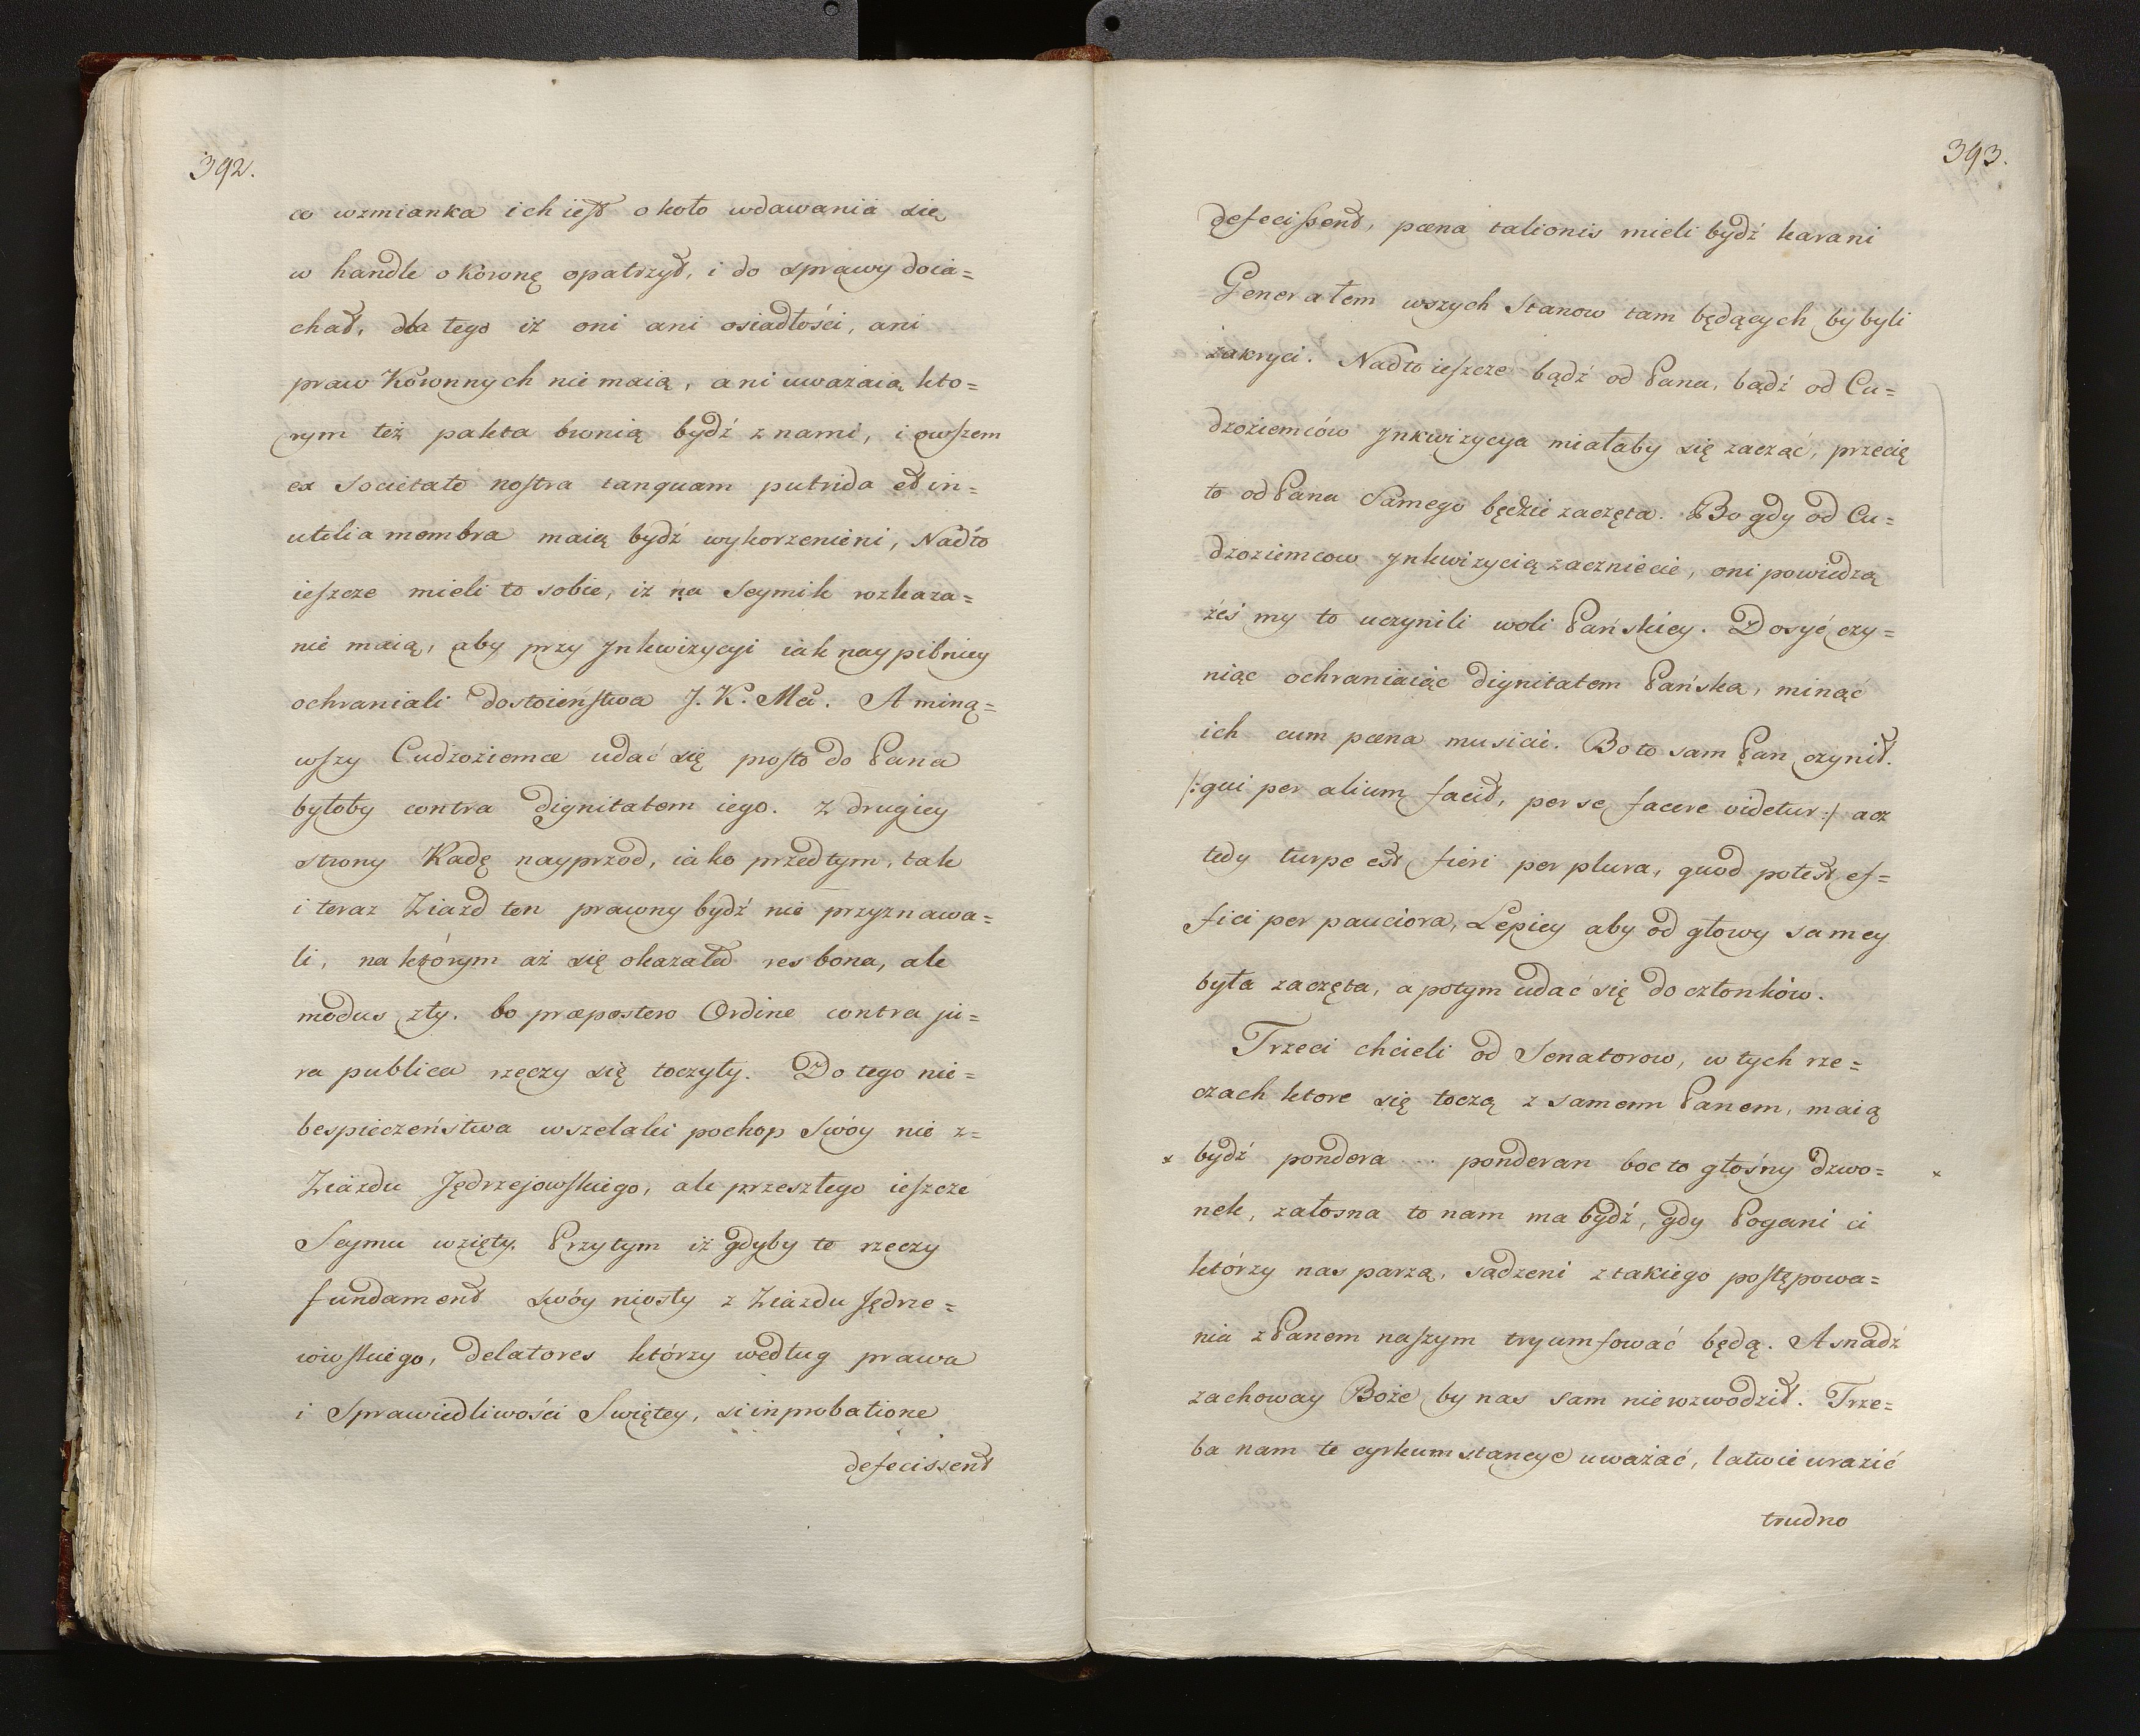 392.
co wzmianka ich iest około wdawania się
w handle o Koronę opatrzył, i do sprawy docia=
chał, dla tego iż oni ani osiadłości, ani
praw Koronnych nie maią, ani uważaią kto=
rym też pakta bronią bydź z nami, i owszem
ex Societate nostra tanquam putrida et in=
utilia membra maią bydź wykorzenieni, Nadto
ieszcze mieli to sobie, iż na Seymik rozkaza=
nie maią, aby przy Jnkwizycyi iak naypilniey
ochraniali Dostoieństwa J. K. Mci. A miną=
wszy Cudzoziemce udać się prosto do Pana
byłoby contra Dignitatem iego. Z drugiey
strony Radę nayprzod, iako przedtym, tak
i teraz Ziazd ten prawny bydź nie przyznawa=
li, na którym aż się okazała res bona, ale
modus zły. bo præpostero Ordine contra ju=
ra publica rzeczy się toczyły. Do tego nie=
bespieczeństwa wszelaki pochop Swóy nie z=
Ziazdu Jędrzejowskiego, ale przeszłego ieszcze
Seymu wzięty. Przytym iż gdyby te rzeczy
fundament swóy niosły z Ziazdu Jędrze=
iowskiego, Delatores którzy według prawa
i Sprawiedliwości Swiętey, si in probatione
defecissent
393.
defecissent, pœna talionis mieli bydź karani
Generałem wszych Stanow tam będących by byli
zakryci. Nadto ieszcze bądź od Pana, bądź od Cu=
dzoziemców Jnkwizycya miałaby się zacząć, przecię
to od Pana Samego będzie zaczęta. Bo gdy od Cu=
dzoziemcow Jnkwizycią zaczniecie, oni powiedzą
żeś my to uczynili woli Pańskiey. Dosyć czy=
niąc ochraniaiąc Dignitatem Pańską, minąć
ich cum pœna musici. Bo to sam Pan czynił.
/: qui per alium facit, per se facere videtur :/ acz
tedy turpe est fieri per plura, quod potest ef=
fici per pauciora, Lepiey aby od głowy samey
była zaczęta, a potym udać się do członków.
Trzeci chcieli od Senatorow, w tych rze=
czach ktore się toczą z samem Panem, maią
× bydź pondera ... ponderan boc to głośny dzwo= ×
nek, załosna to nam ma bydź, gdy Pogani ci
którzy nas parzą, sądzeni z takiego postępowa=
nia z Panem naszym tryumfować będą. A snadź
zachoway Boże by nas sam nierozwodził. Trze=
ba nam te cyrkumstancye uważać, łatwie urazić
trudno